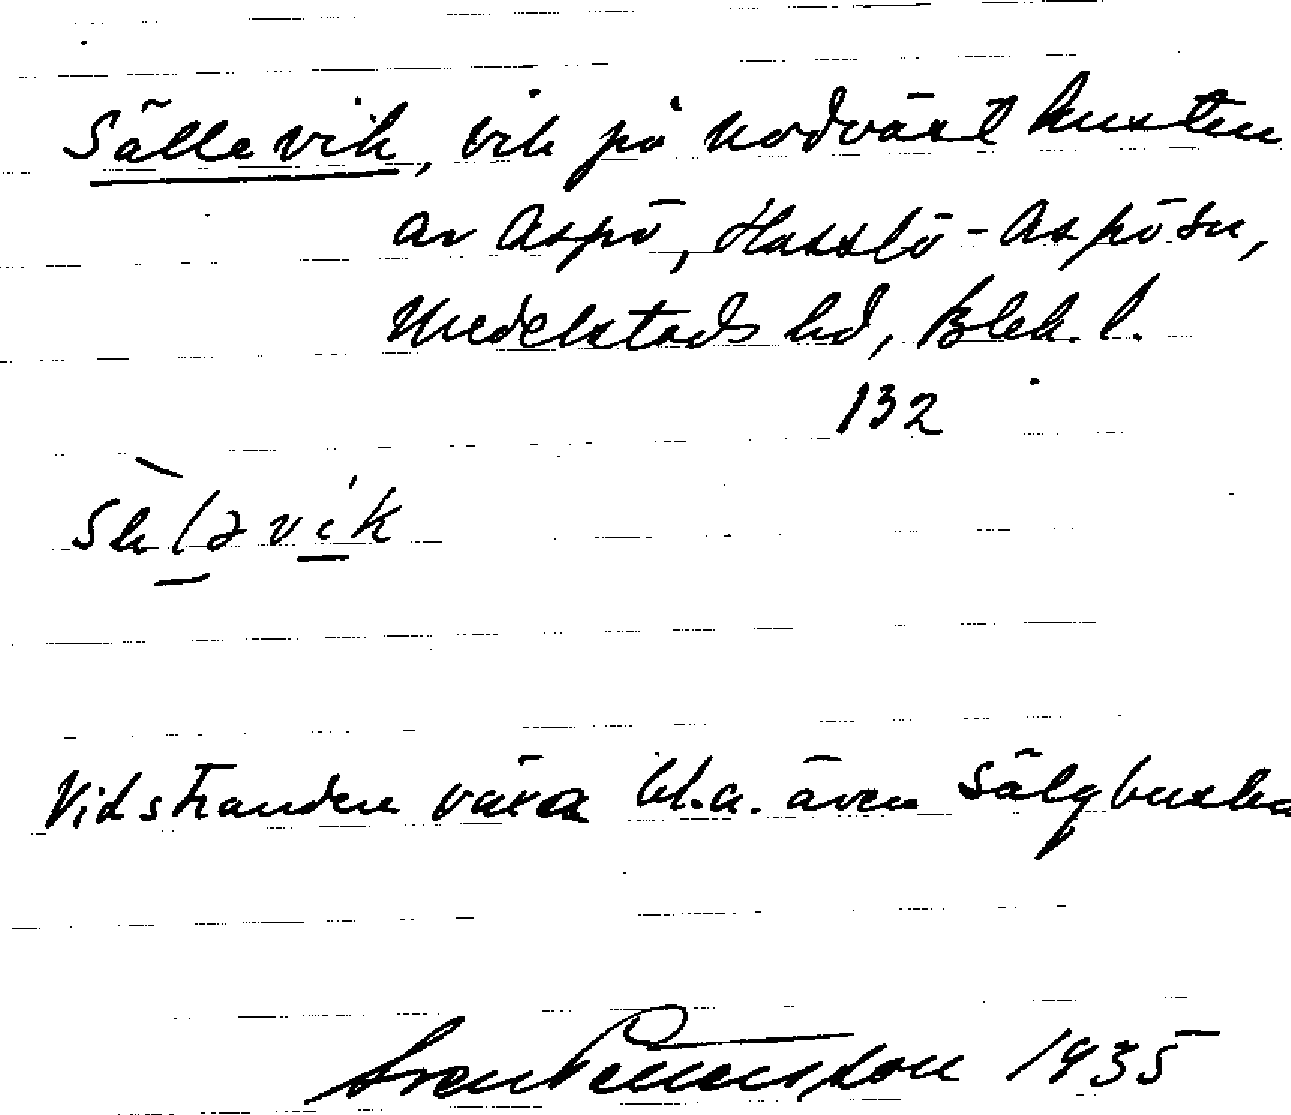 Sällevik, vik på nodvästkusten
av Aspö, Hasslö-Aspö sn,
Medelstads hd, Blek. l.
132
Vid stranden växa bl.a. även sälgbuska
Sven Benson 1935